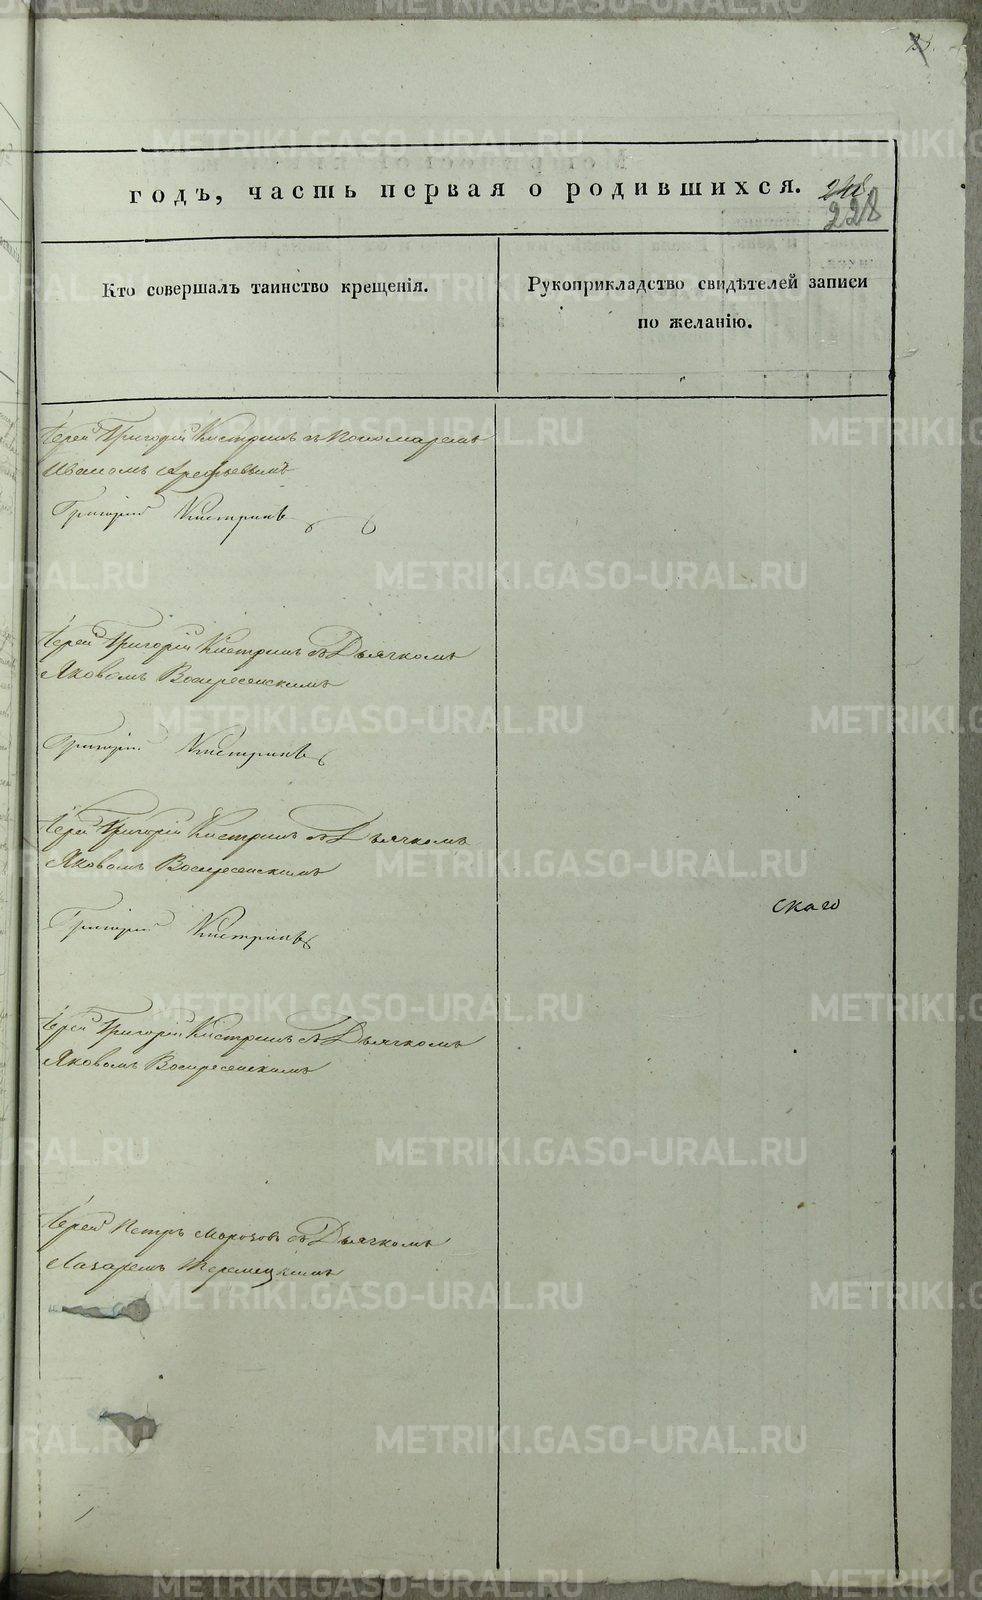 годъ, часть первая о родившихся.
228
Кто совершалъ таинство крещенія.
Рукоприкладство свидѣтелей записи
по желанію.
Іерей Григорій Кистринъ съ Пономаремъ
Иваномъ Арефьевымъ
Григорій Кистринъ
Іерей Григорій Кистринъ съ Дьячкомъ
Яковомъ Воскресенскимъ
Григорій Кистринъ
Іерей Григорій Кистринъ съ Дьячкомъ
Яковомъ Воскресенскимъ
скаго
Григорій Кистринъ
Іерей Григорій Кистринъ съ Дьячкомъ
Яковомъ Воскресенскимъ
Іерей Петръ Морозовъ съ Дьячкомъ
Лазаремъ
METRIKI.GASO-URAL.RU